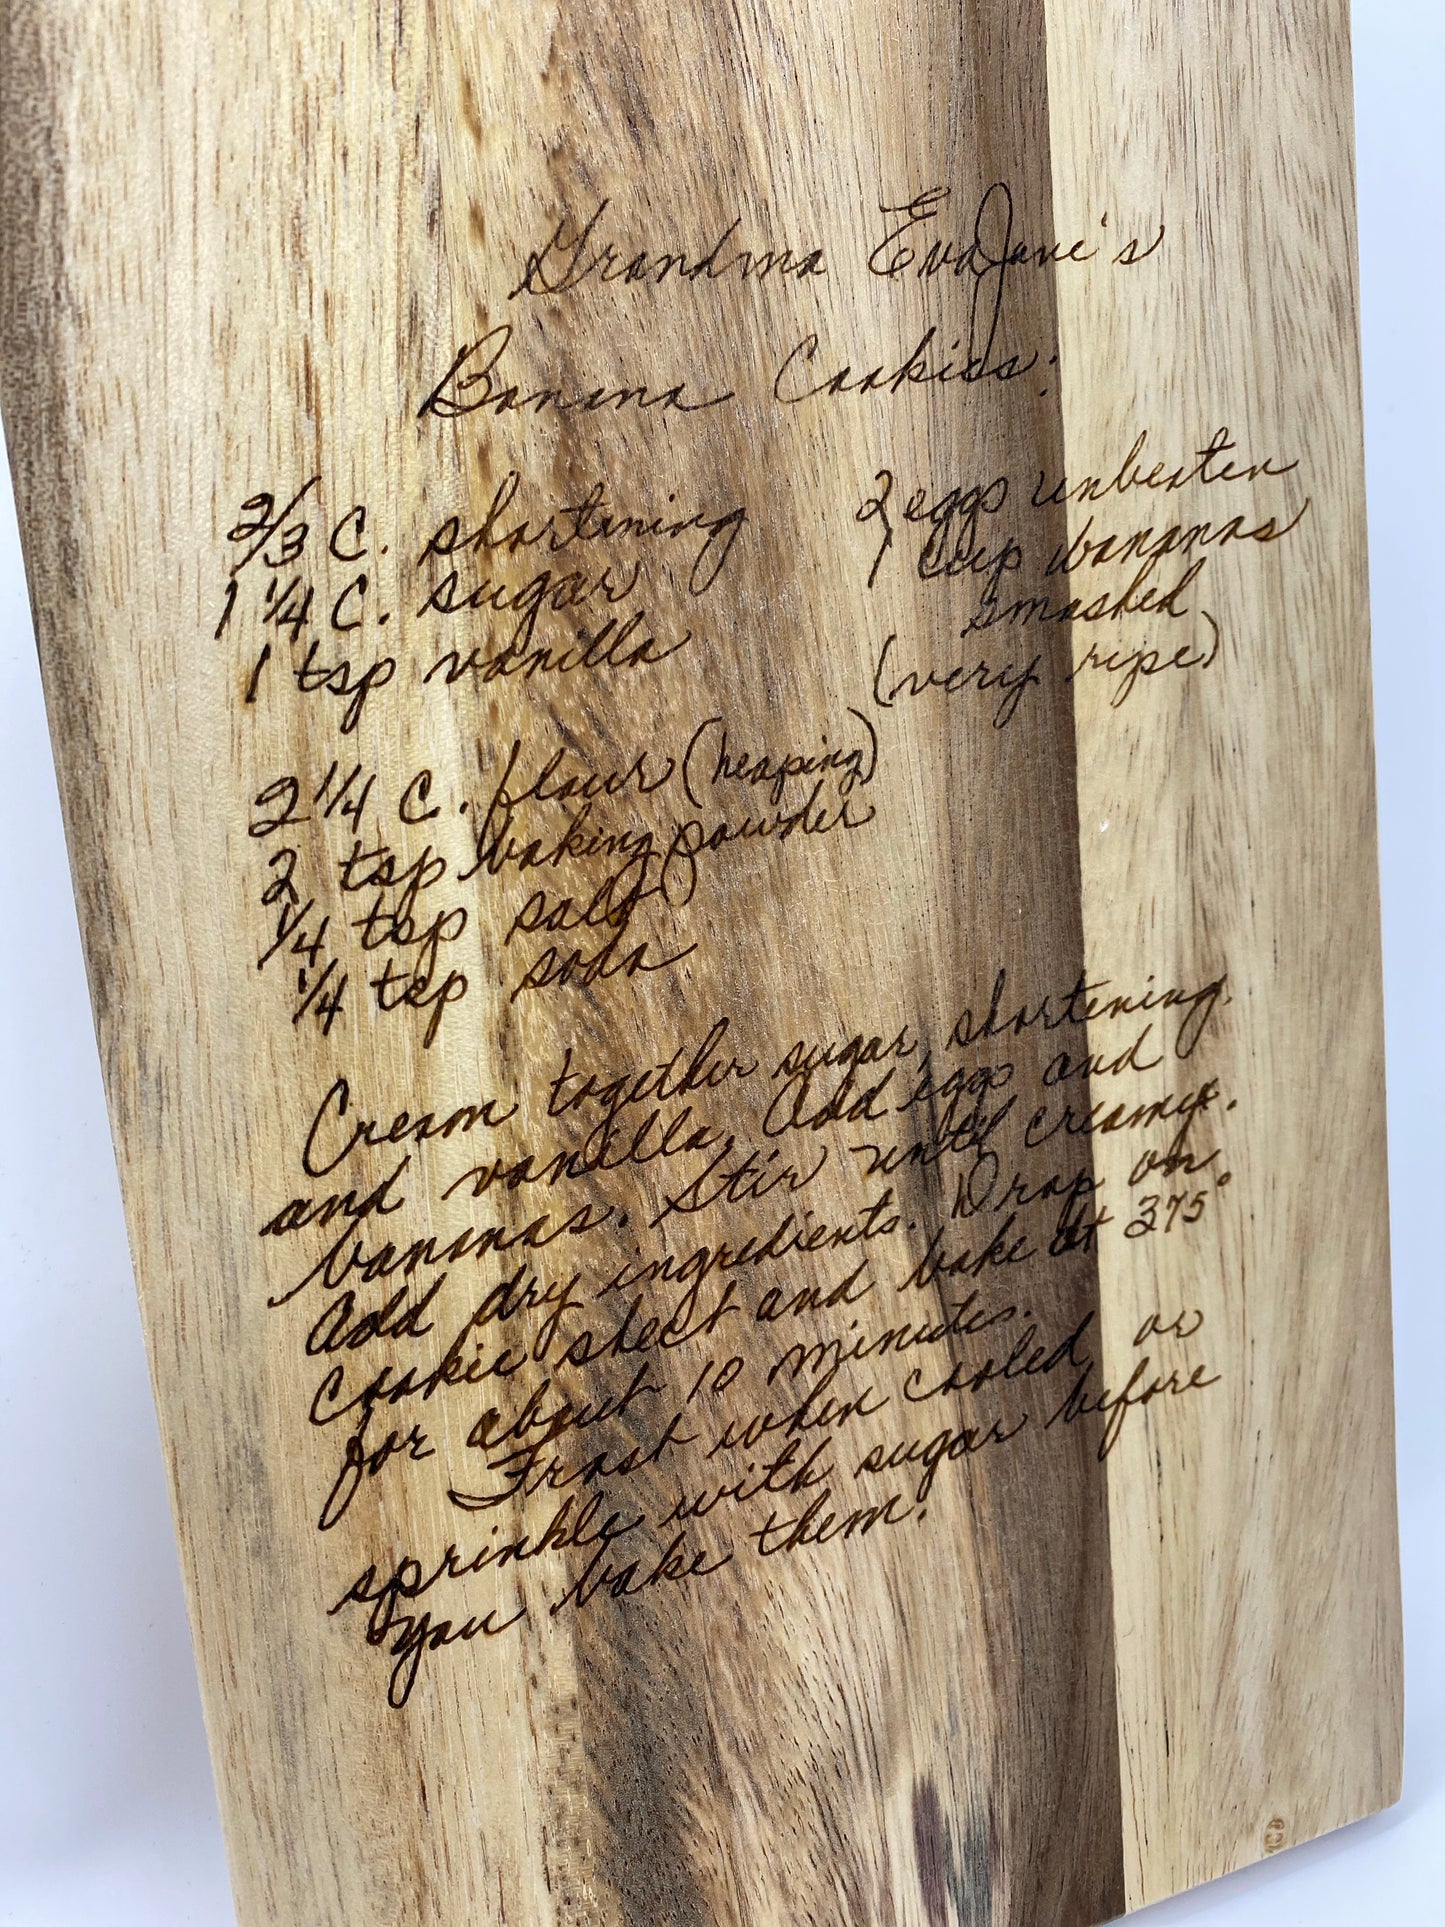 Grandma EvaJane's
Banana Cookies:
2/3 C. shortening
1 1/4 C. sugar
1 tsp vanilla
2 eggs unbeaten
1 cup bananas
smashed
(very ripe)
2 1/4 C. flour (heaping)
2 tsp baking powder
1/4 tsp salt
1/4 tsp soda
Cream together sugar, shortening
and vanilla. Add eggs and
bananas. Stir until creamy.
Add dry ingredients. Drop on
cookie sheet and bake at 375°
for about 10 minutes.
Frost when cooled or
sprinkle with sugar before
you bake them.